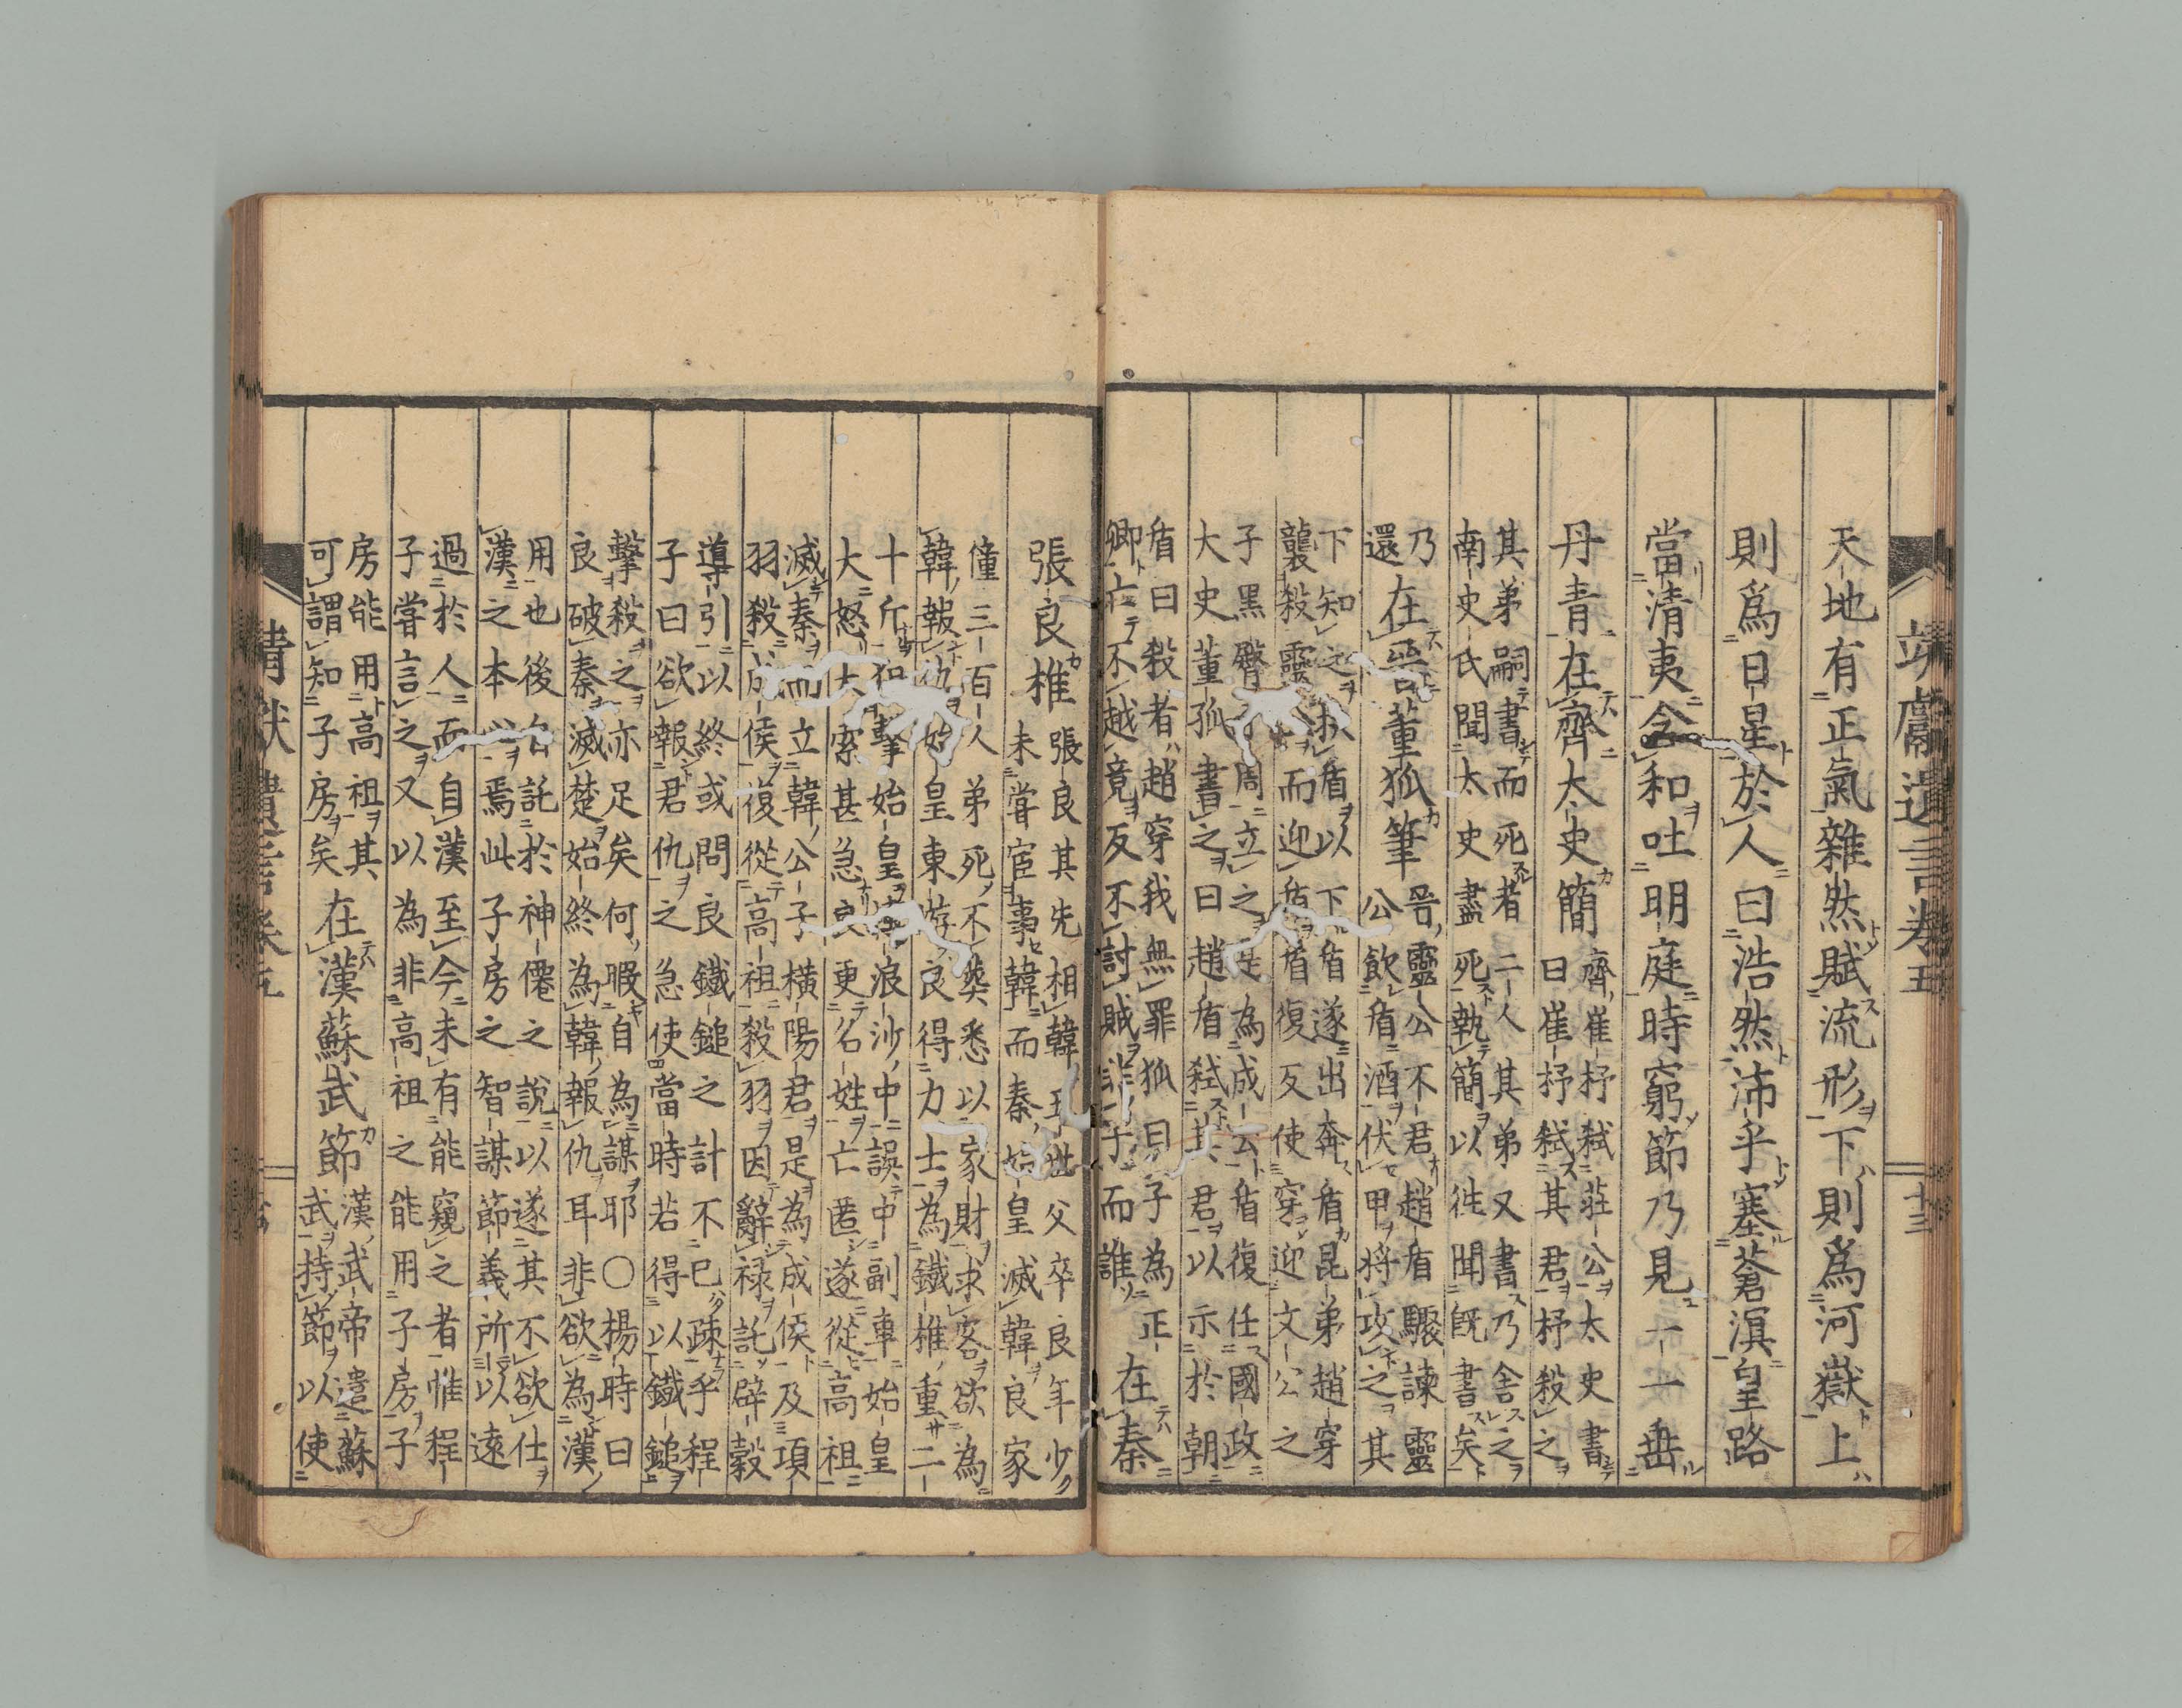 靖獻遺言卷五
十三
天地有正氣雜然賦流形下則爲河嶽上
則爲日星於人曰浩然沛乎塞蒼溟皇路
當清夷含和吐明庭時窮節乃見一一垂
丹青在齊太史簡
齊崔杼弑莊公太史書
曰崔杼弑其君杼殺之
其弟嗣書而死者二人其弟又書乃舍之
南史氏聞太史盡死執簡以往聞既書矣
乃
還
在晉董狐筆
晉靈公不君趙盾驟諫靈
公飲盾酒伏甲將攻之其
下知之扶盾以下盾遂出奔盾昆弟趙穿
襲殺靈公而迎盾盾復反使穿迎文公之
子黑臀周立之是為成公盾復任國政
大史董狐書之曰趙盾弑其君以示於朝
盾曰殺者趙穿我無罪狐曰子為正
卿亡不越竟反不討賊非子而誰
在秦
張良椎
張良其先相韓五世父卒良年少
未嘗宦事韓而秦始皇滅韓良家
僮三百人弟死不葬悉以家財求客欲為
韓報仇始皇東游良得力士為鐵椎重二
十斤狙擊始皇博浪沙中誤中副車始皇
大怒大索甚急良更名姓亡匿遂從高祖
滅秦而立韓公子橫陽君是為成侯及項
羽殺成侯復從高祖殺羽因辭祿託辟穀
導引以終或問良鐵鎚之計不已疎乎程
子曰欲報君仇之急使當時若得以鐵鎚
擊殺之亦足矣何暇自為謀耶○楊時曰
良破秦滅楚始終為韓報仇耳非欲為漢
用也後名託於神僊之說以遂其不欲仕
漢之本心焉此子房之智謀節義所以遠
過於人而自漢至今未有能窺之者惟程
子嘗言之又以為非高祖之能用子房子
房能用高祖其
可謂知子房矣
在漢蘇武節
漢武帝遣蘇
武持節以使
靖獻遺言卷五